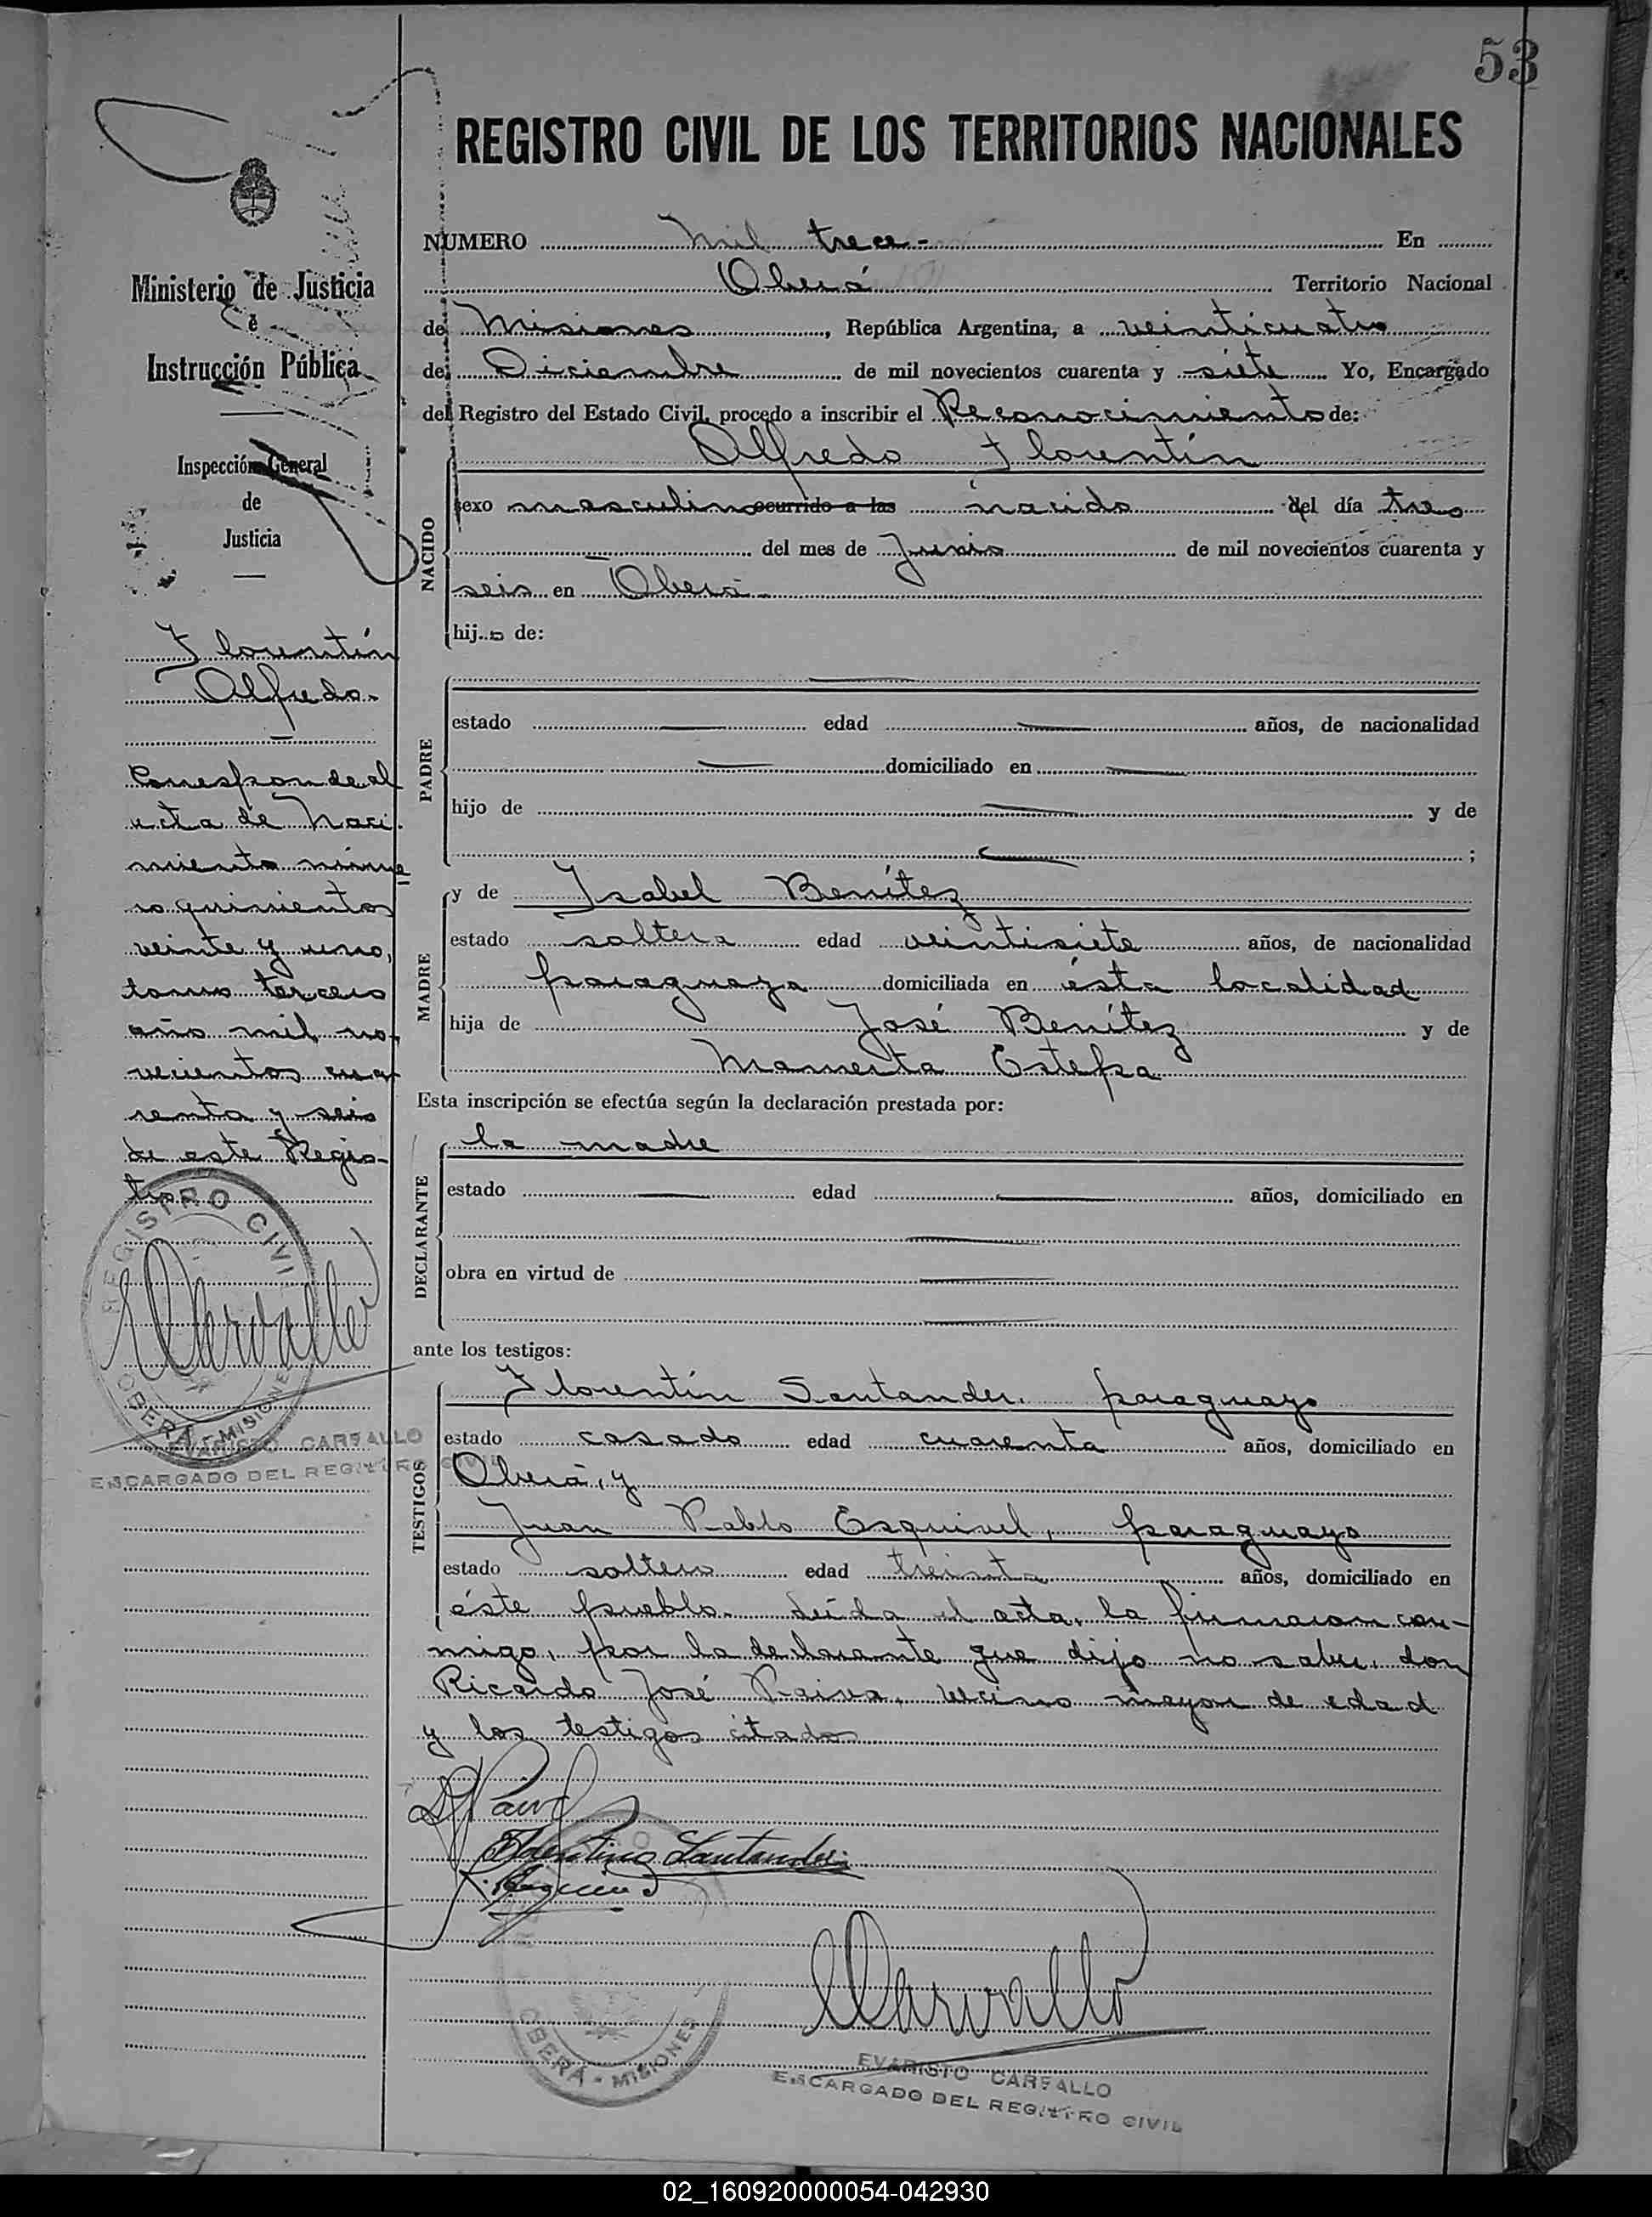 53
REGISTRO CIVIL DE LOS TERRITORIOS NACIONALES
NUMERO mil trece.- En
Oberá Territorio Nacional
de Misiones, República Argentina, a veinticuatro
de Diciembre de mil novecientos cuarenta y siete Yo, Encargado
del Registro del Estado Civil, procedo a inscribir el Reconocimiento de:
Alfredo Florentín
NACIDO
sexo masculino ocurrido a las nacido del día tres
del mes de Junio de mil novecientos cuarenta y
seis en Oberá.
hijo de:
PADRE
estado edad años, de nacionalidad
domiciliado en
hijo de y de
;
MADRE
y de Isabel Benítez
estado soltera edad veintisiete años, de nacionalidad
paraguaya domiciliada en ésta localidad
hija de José Benítez y de
Mamerta Estepa
Esta inscripción se efectúa según la declaración prestada por:
DECLARANTE
la madre
estado edad años, domiciliado en
obra en virtud de
ante los testigos:
TESTIGOS
Florentín Santander, paraguayo
estado casado edad cuarenta años, domiciliado en
Oberá, y
Juan Pablo Esquivel, paraguayo
estado soltero edad treinta años, domiciliado en
éste pueblo. Leída el acta, la firmaron con-
migo, por la declarante que dijo no saber, don
Ricardo José Paiva, vecino mayor de edad
y los testigos citados
Florentino Santander
OBERÁ - MISIONES
EVARISTO CARVALLO
ENCARGADO DEL REGISTRO CIVIL
Ministerio de Justicia
é
Instrucción Pública
Inspección General
de
Justicia
Florentín
Alfredo.
Corresponde al
acta de naci-
miento núme-
ro quinientos
veinte y uno,
tomo tercero
año mil no-
vecientos cua-
renta y seis
de este Regis-
tro.
REGISTRO CIVIL
OBERÁ - MISIONES
EVARISTO CARVALLO
ENCARGADO DEL REGISTRO CIVIL
02_160920000054-042930